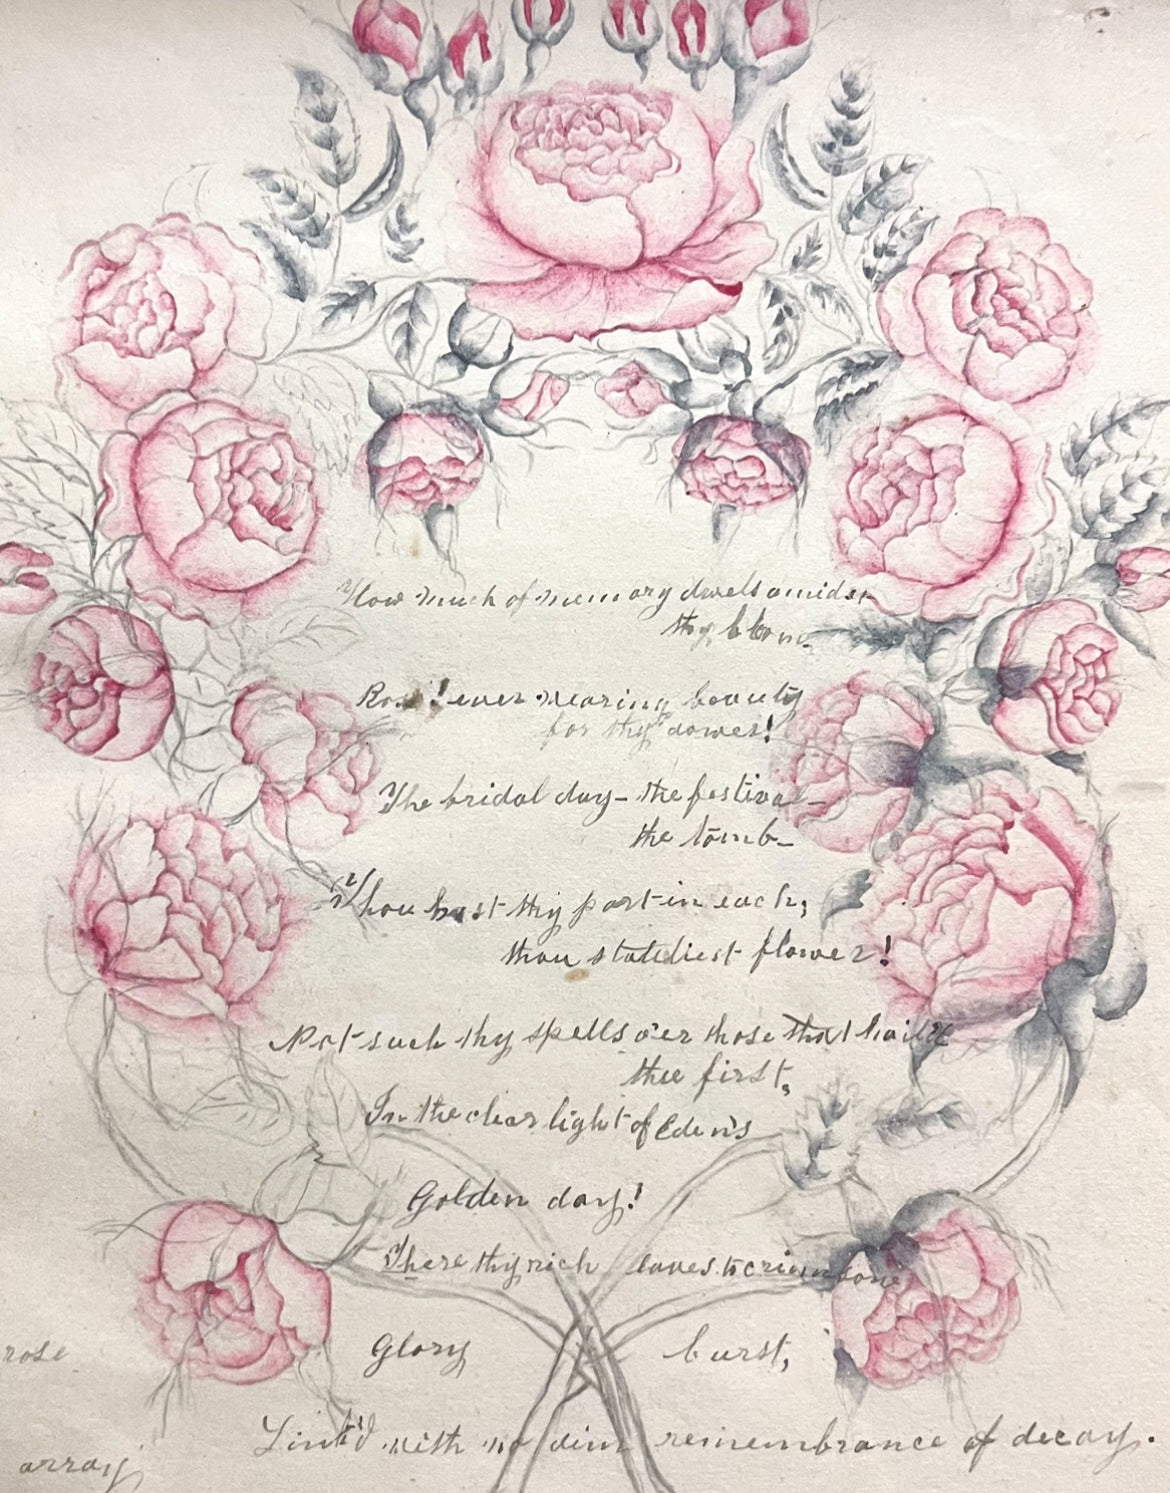 How much of memory dwells amidst
thy bloom
Rose! ever wearing beauty
for thy dower!
The bridal day - the festival -
the tomb -
Thou hast thy part in each,
thou stateliest flower!
Not such thy spells o'er those that hail'd
thee first,
In the clear light of Eden's
Golden day!
There thy rich leaves to crimson
rose
Glory burst,
Link'd with no dim remembrance of decay.
array